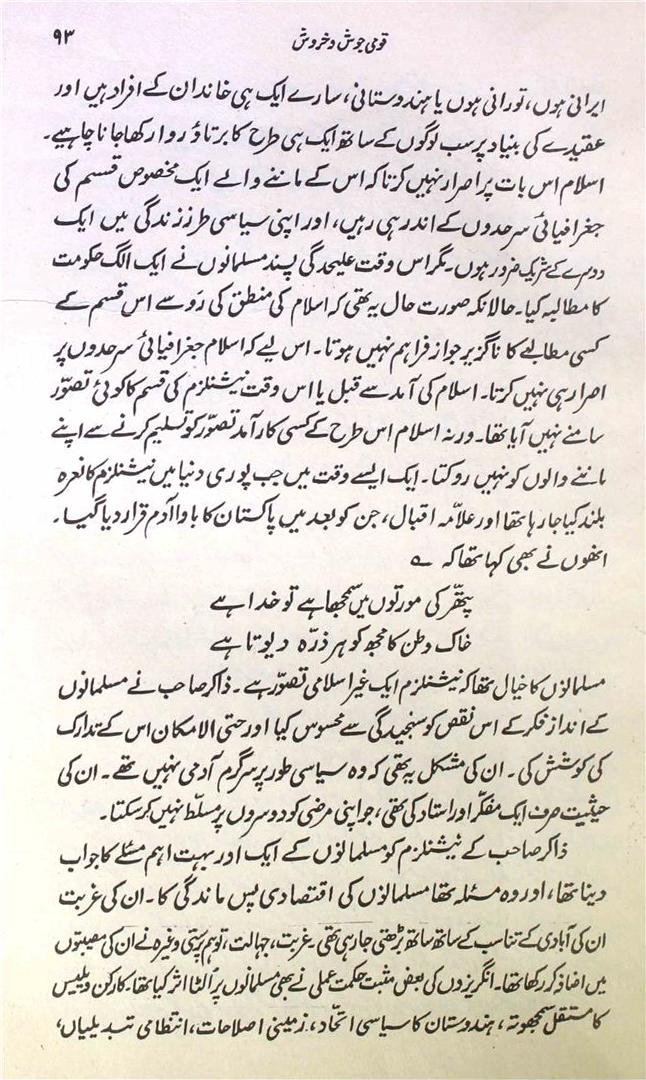 قومی جوش و خروش
۹۳
ایرانی ہوں، تورانی ہوں یا ہندوستانی، سارے ایک ہی خاندان کے افراد ہیں اور
عقیدے کی بنیاد پر سب لوگوں کے ساتھ ایک ہی طرح کا برتاؤ روا رکھا جانا چاہیے۔
اسلام اس بات پر اصرار نہیں کرتا کہ اس کے ماننے والے ایک مخصوص قسم کی
جغرافیائی سرحدوں کے اندر ہی رہیں، اور اپنی سیاسی طرز زندگی میں ایک
دوسرے کے شریک ضرور ہوں۔ مگر اس وقت علیحدگی پسند مسلمانوں نے ایک الگ حکومت
کا مطالبہ کیا۔ حالانکہ صورت حال یہ تھی کہ اسلام کی منطق کی رَو سے اس قسم کے
کسی مطالبے کا ناگزیر جواز فراہم نہیں ہوتا۔ اس لیے کہ اسلام جغرافیائی سرحدوں پر
اصرار ہی نہیں کرتا۔ اسلام کی آمد سے قبل یا اس وقت نیشنلزم کی قسم کا کوئی تصوّر
سامنے نہیں آیا تھا۔ ورنہ اسلام اس طرح کے کسی کارآمد تصوّر کو تسلیم کرنے سے اپنے
ماننے والوں کو نہیں روکتا۔ ایک ایسے وقت میں جب پوری دنیا میں نیشنلزم کا نعرہ
بلند کیا جا رہا تھا اور علاّمہ اقبال، جن کو بعد میں پاکستان کا باوا آدم قرار دیا گیا۔
انھوں نے بھی کہا تھا کہ ؎
پتھّر کی مورتوں میں سمجھا ہے تو خدا ہے
خاک وطن کا مجھ کو ہر ذرّہ دیوتا ہے
مسلمانوں کا خیال تھا کہ نیشنلزم ایک غیر اسلامی تصوّر ہے۔ ذاکر صاحب نے مسلمانوں
کے اندازِ فکر کے اس نقص کو سنجیدگی سے محسوس کیا اور حتی الامکان اس کے تدارک
کی کوشش کی۔ ان کی مشکل یہ تھی کہ وہ سیاسی طور پر سرگرم آدمی نہیں تھے۔ ان کی
حیثیت صرف ایک مفکّر اور استاد کی تھی، جو اپنی مرضی کو دوسروں پر مسلّط نہیں کر سکتا۔
ذاکر صاحب کے نیشنلزم کو مسلمانوں کے ایک اور بہت اہم مسئلے کا جواب
دینا تھا، اور وہ مسئلہ تھا مسلمانوں کی اقتصادی پس ماندگی کا۔ ان کی غربت
ان کی آبادی کے تناسب کے ساتھ ساتھ بڑھتی جا رہی تھی۔ غربت، جہالت، توہم پرستی وغیرہ نے ان کی مصیبتوں
میں اضافہ کر رکھا تھا۔ انگریزوں کی بعض مثبت حکمت عملی نے بھی مسلمانوں پر الٹا اثر کیا تھا۔ کارکن ویلیس
کا مستقل سمجھوتہ، ہندوستان کا سیاسی اتّحاد، زمینی اصلاحات، انتظامی تبدیلیاں،